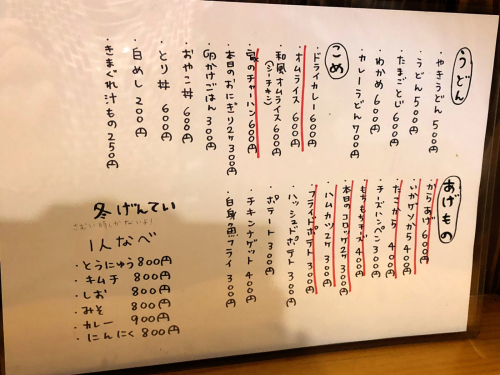 うどん
・やきうどん 500円
・うどん 500円
・たまごとじ 600円
・わかめ 600円
・カレーうどん 700円
こめ
・ドライカレー 600円
・オムライス 600円
・和風オムライス 600円
(シーチキン)
・家のチャーハン 600円
・本日のおにぎり2ケ 300円
・卵かけごはん 300円
・おやこ丼 600円
・とり丼 600円
・白めし 200円
・きまぐれ汁もの 250円
あげもの
・からあげ 600円
・いかゲソから 500円
・たこから 400円
・チーズハンペン 300円
・もちもちチーズ 400円
・本日のコロッケ2ケ 300円
・ハムカツ2ケ 300円
・フライドポテト 300円
・ハッシュドポテト 300円
・ポテート 300円
・チキンナゲット 400円
・白身魚フライ 300円
冬げんてい
1人なべ
・とうにゅう 800円
・キムチ 800円
・しお 800円
・みそ 800円
・カレー 900円
・にんにく 800円